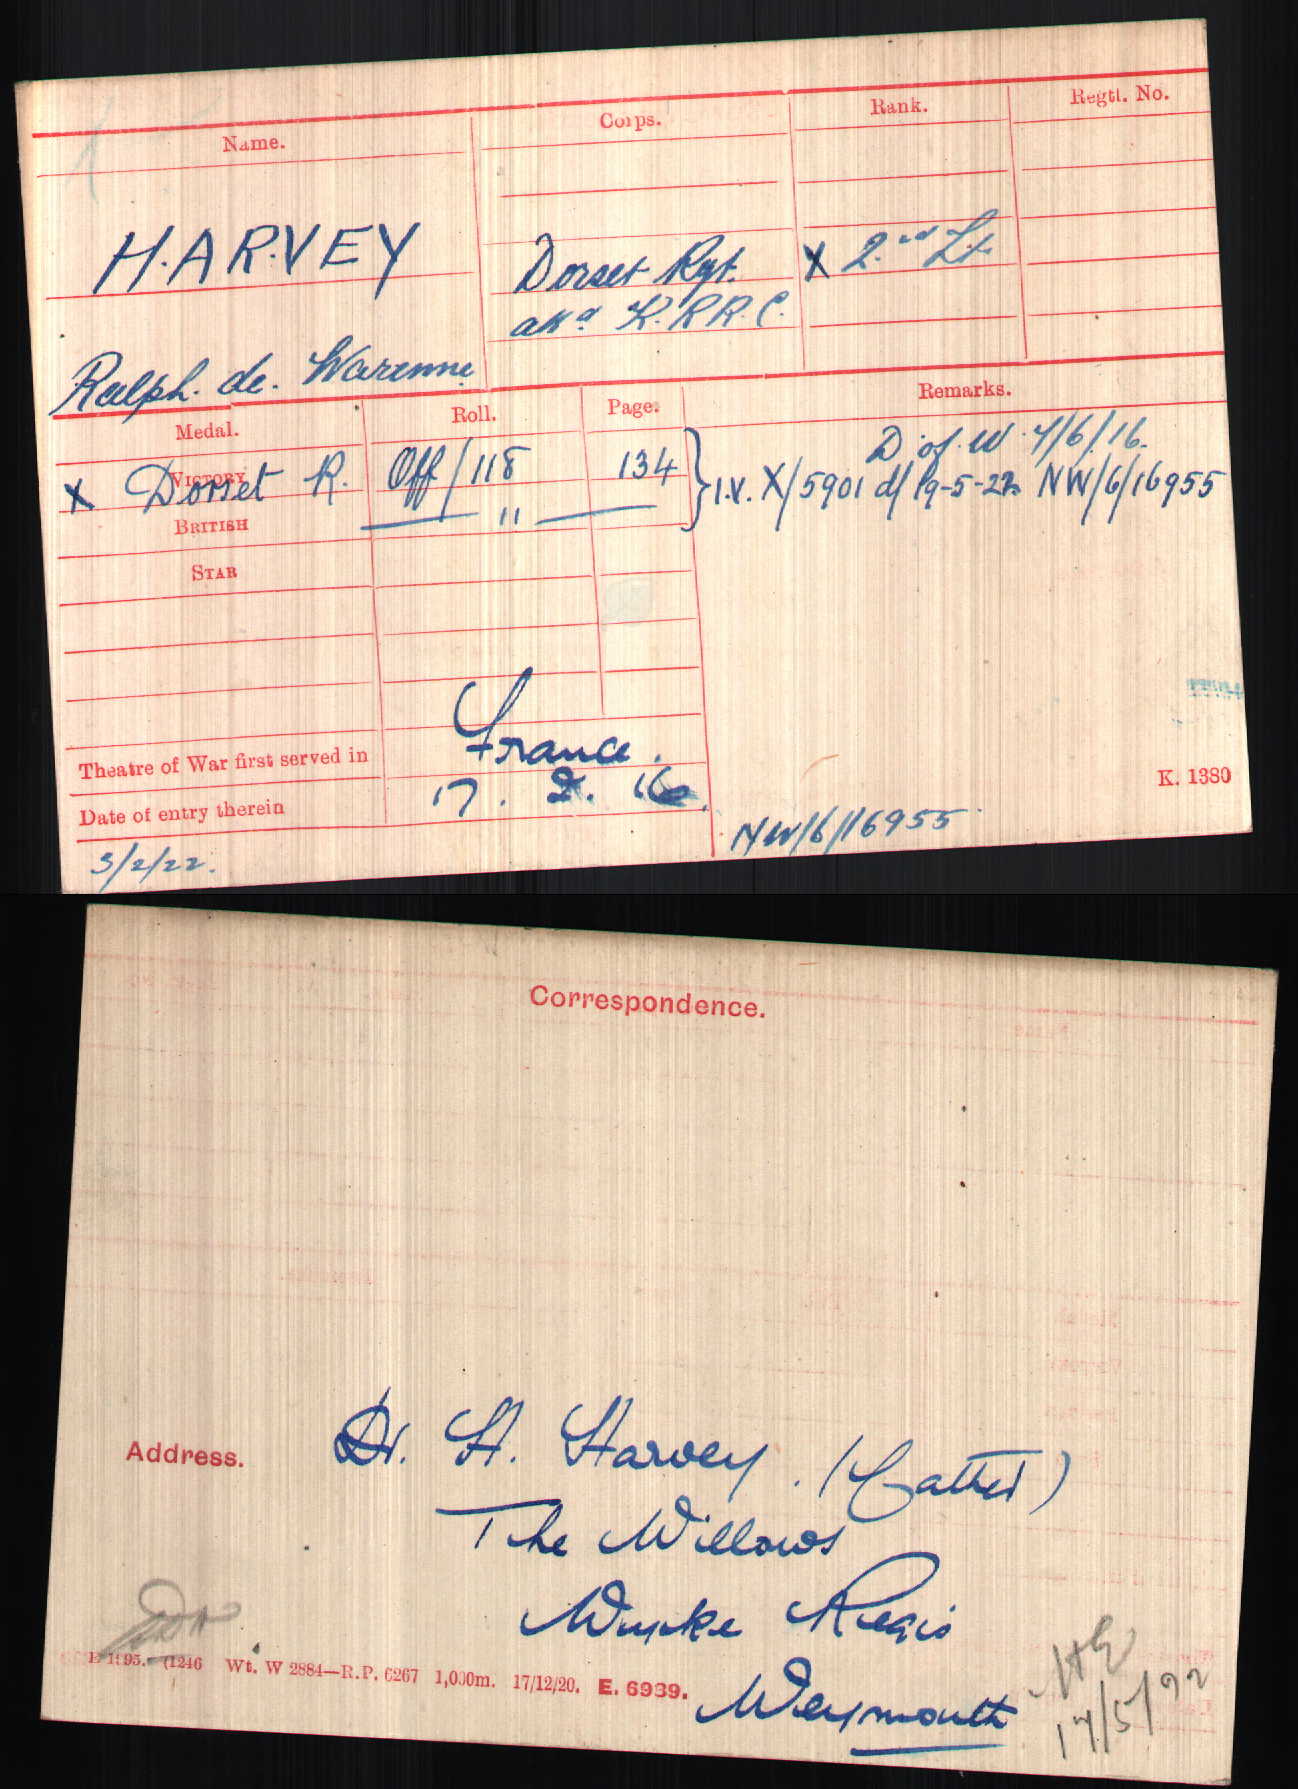 Name. Corps. Rank. Regtl. No.
HARVEY Dorset Rgt. X 2nd Lt.
K.R.R.C.
Ralph. de. Warenne
Medal. Roll. Page. Remarks.
D of W 7/6/16.
VICTORY
X Dorset R. Off/118 134 } I.V. X/5901 d/19-5-22 NW/6/16955
BRITISH — " —
STAR
Theatre of War first served in France.
Date of entry therein 17. 2. 16.
K. 1380
3/2/22. NW/6/16955
Correspondence.
Address. Dr. H. Harvey. (Father)
The Willows
Wyke Regis
Weymouth
(1246 Wt. W 2884—R.P. 6267 1,000m. 17/12/20. E. 6939.
17/5/22